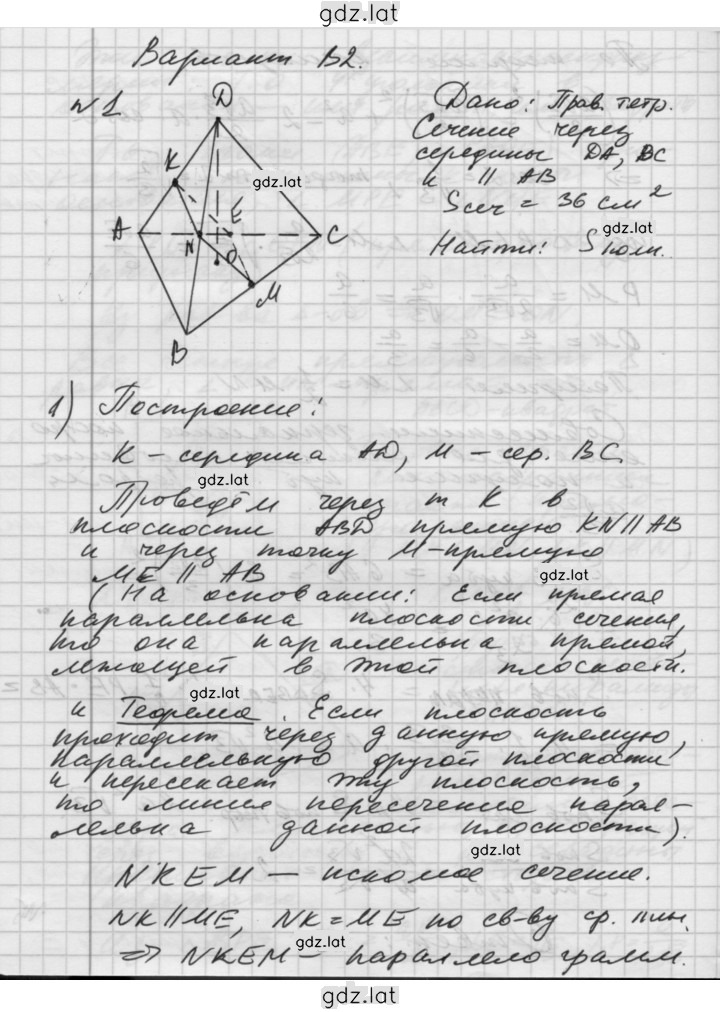 gdz.lat
Вариант В2.
№1
D
K
gdz.lat
A
N
E
C
O
M
B
Дано: Прав. тетр.
Сечение через
середины DA, BC
и || AB
Sсеч = 36 см²
Найти: Sполн.
1) Построение:
K – середина AD, M – сер. BC
gdz.lat
Проведём через т K в
плоскости ABD прямую KN || AB
и через точку M – прямую
ME || AB
gdz.lat
(На основании: Если прямая
параллельна плоскости сечения,
то она параллельна прямой,
лежащей в этой плоскости.
gdz.lat
и Теорема. Если плоскость
проходит через данную прямую,
параллельную другой плоскости
и пересекает эту плоскость,
то линия пересечения парал-
лельна данной плоскости).
gdz.lat
NKEM – искомое сечение.
NK || ME, NK = ME по св-ву ср. лин.
gdz.lat
⇒ NKEM – параллелограмм.
gdz.lat